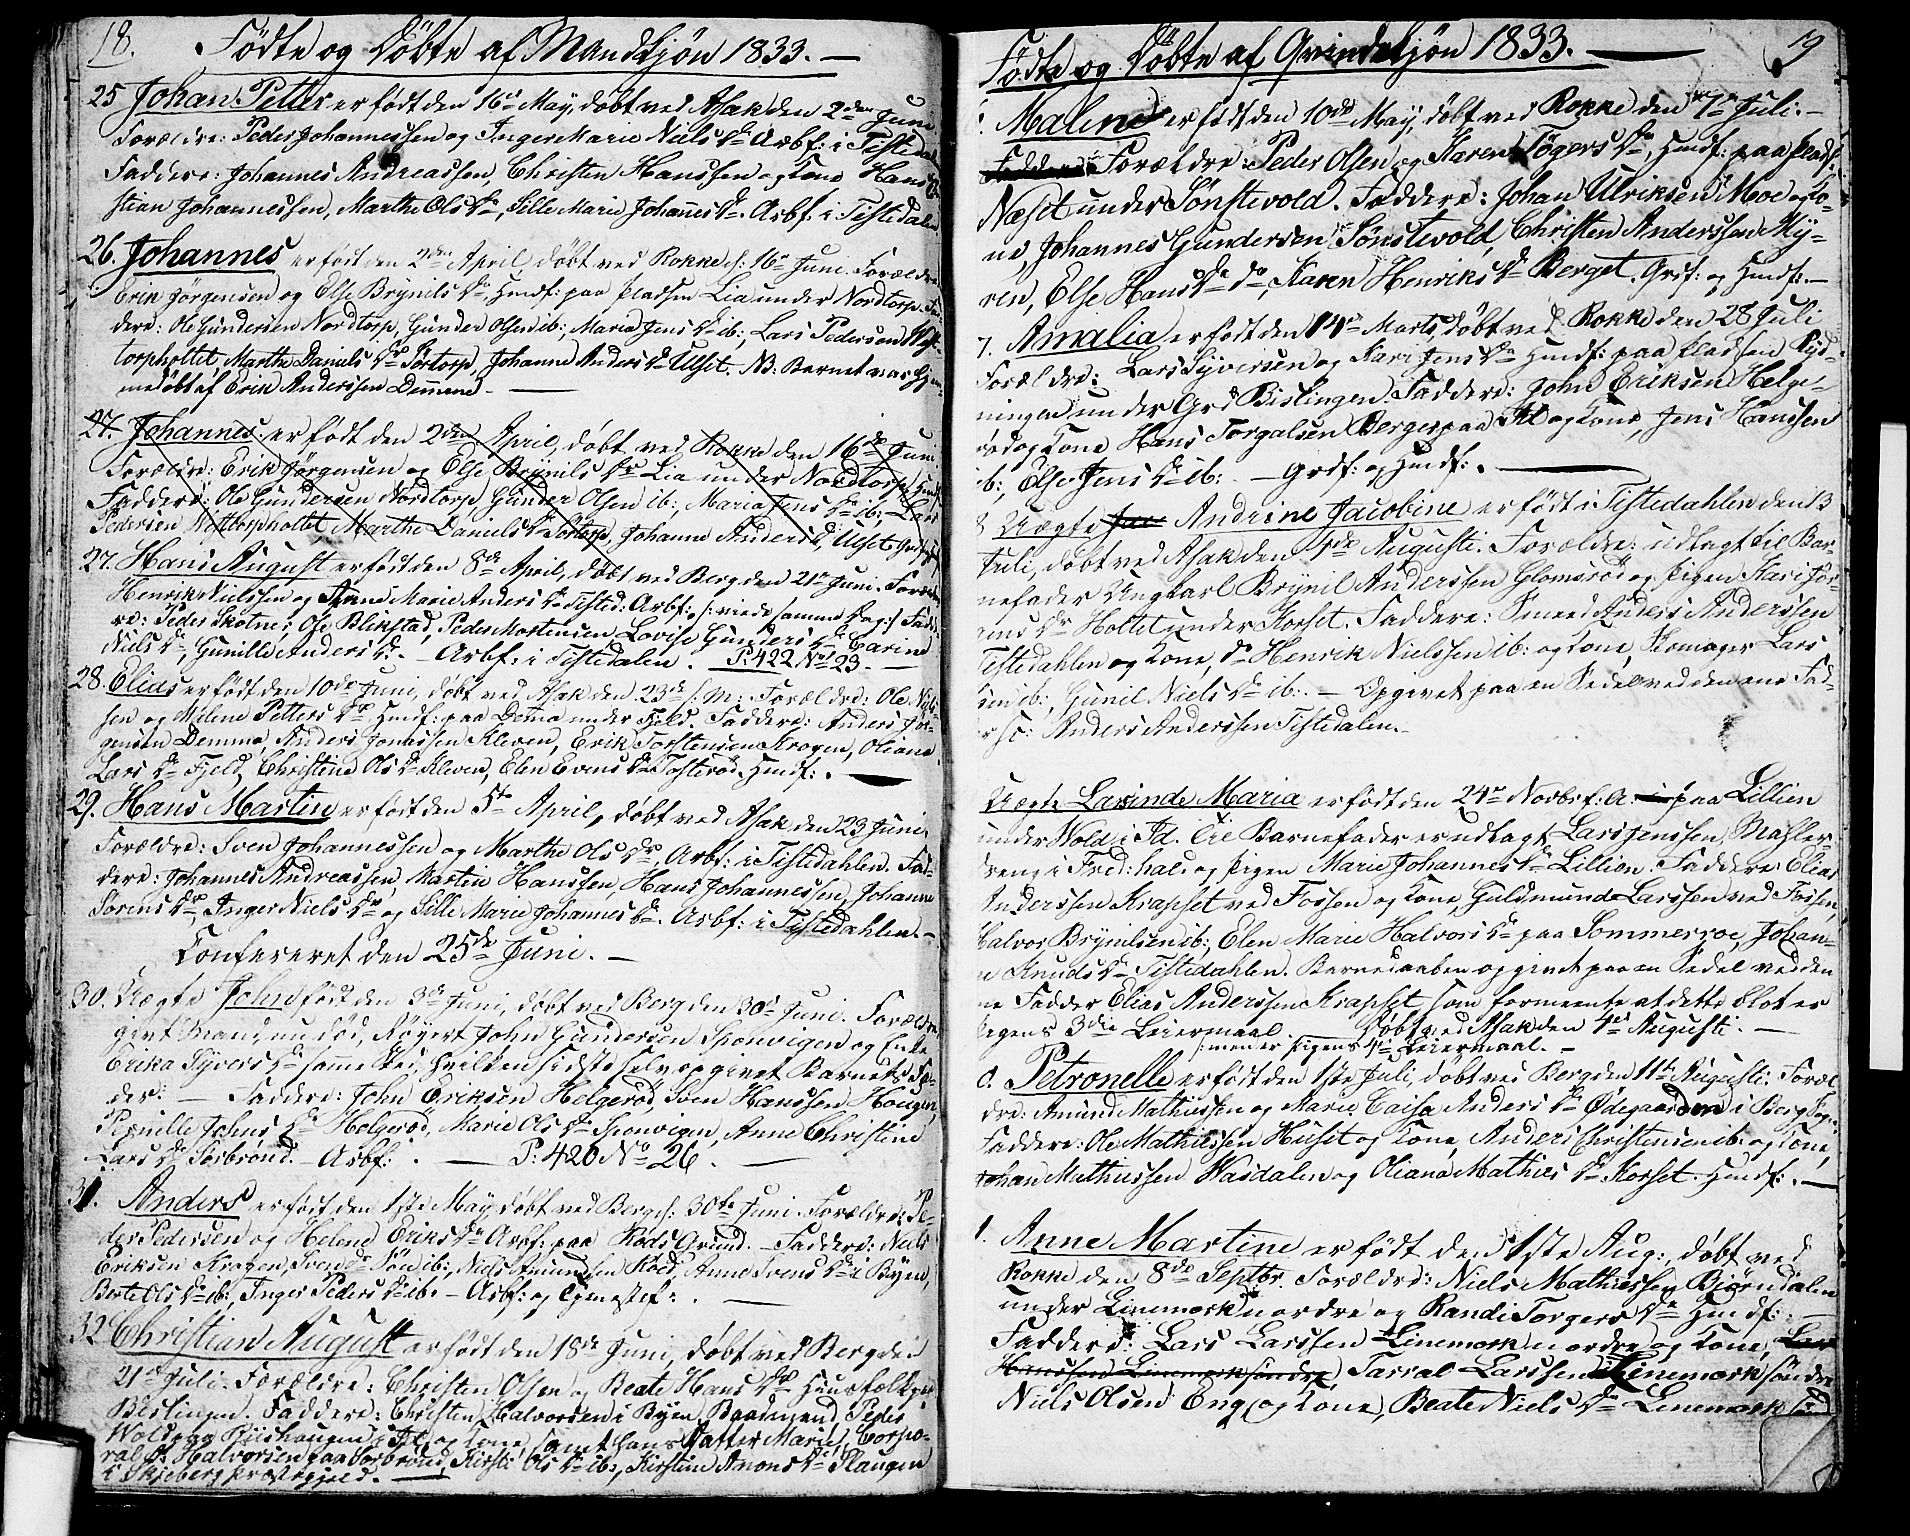 18.
Fødte og Døbte af Mandkjøn 1833. —
25 Johan Petter er født den 16de May, døbt ved Asak den 2den Juni
Forældre: Peder Johannessen og Inger Marie Niels Dr Arbf: i Tistedal
Faddere: Johannes Andreassen, Christen Hanssen og Kone Hans
stian Johannessen, Marthe Ols Dr, Sille Marie Johanes Dr. Arbf. i Tistedalen
26. Johannes er født den 2den April, døbt ved Rokke d: 16de Juni. Forældre
Erik Jørgensen og Else Brynils Dr, Huusf: paa Pladsen Lia under Nordtorp. Fad-
dere: Ole Gundersen Nordtorp, Gunder Olsen ib:, Maria Jens Dr ib:, Lars Pedersen
torpholtet, Marthe Daniels Dr Sørtorp, Johanne Anders Dr Ulset. NB: Barnet var hjem-
medøbt af Erik Anderssen Demmend. —
27. Johannes er født den 2den April, døbt ved Rokke den 16de Juni
Forældre: Erik Jørgensen og Else Brynils Dr Lia under Nordtorp
Faddere: Ole Gundersen Nordtorp, Gunder Olsen ib: Maria Jens Dr ib:, Lars
Pedersen Marthe Daniels Dr Sørtorp, Johanne Anders Dr, Ulset
27. Hans August er født den 8de April, døbt ved Berg den 21de Juni. Foræld
Henrik Nielssen og Anne Marie Anders Dr Tisted: Arbf: /: viede samme Dag :/ Fad
re: Peder Skotne, Ole Blikstad, Peder Mortensen Lovise Gunders Dr Carine
Niels Dr, Gunille Anders Dr. — Arbf: i Tistedalen. P: 422 No 23. —
28. Elias er født den 10de Juni, døbt ved Asak den 23de s: M: Forældre: Ole Niel
sen og Milene Petters Dr, Huusf: paa Dema under Fjeld. Faddere: Anders Jør-
gensen Demma, Anders Jonassen Kleven, Erik Torstensen Krogen, Oliane
Lars Dr Fjeld, Christine Ols Dr Kleven, Elen Evens Dr Tosterød. Huusf: . —
29. Hans Martin er født den 5te April, døbt ved Asak den 23 Juni.
Forældre: Sven Johannessen og Marthe Ols Dr, Arbf: i Tistedahlen. Fad-
dere: Johannes Andreassen, Marten Hanssen, Hans Johannessen, Johanne
Sørens Dr, Inger Niels Dr og Sille Marie Johannes Dr. Arbf: i Tistedahlen. —
Confereret den 25de Juni. —
30. Uægte John født den 3de Juni, døbt ved Berg den 30de Juni. Foræld
givt Mand, nu død, Røgert John Gundersen Sponvigen og Enke
Erika Syvers Dr samme Sted, hvilken sidste selv opgivet Barnets Fa-
der: — Faddere: John Eriksen Helgerød, Sven Hanssen Hougen,
Pernille Johns Dr Helgerød, Marie Ols Dr Sponvigen, Anne Christine
Lars Dr Sørbrønd. — Arbf: . — P: 420 No 26. —
31. Anders er født den 1ste May, døbt ved Berg d: 30te Juni. Forældre: Pe-
der Pedersen og Helene Eriks Dr Arbf: paa Røds Grund. — Faddere: Niels
Eriksen Krogen, Svend Søn ib:, Niels Amundsen Röd, Anne Svens Dr i Byen,
Berte Ols Dr ib:, Inger Peders Dr ib: — Arbf: og Tjenestef: . —
32. Christian August er født den 18de Juni, døbt ved Berg den
21de Juli. Forældre: Christen Olsen og Beate Hans Dr Huusfolk paa
Bislingen. Faddere: Christen Halvorsen i Byen, Baadsmand Peder
Wold paa Riishaugen i Id og Kone, samt hans Datter Marie, Corpo-
ral O: Halvorsen paa Sørbrønd, Kirsti Ols Dr ib:, Kirstine Amons Dr Slaugen
i Skjeberg Præstegjeld. —
19
Fødte og Døbte af Qvindekjøn 1833. —
Maline er født den 10de May, døbt ved Rokke den 7de Juli. —
Forældre: Peder Olsen og Karen Tøgers Dr, Huusf: paa Plads
Næset under Sønstevold. Faddere: Johan Ulriksen Moe og Ko-
ne, Johannes Gundersen Sønstevold, Christen Anderssen My-
ren, Else Hans Dr do, Karen Henriks Dr Berget. Grdf: og Huusf: —
7. Amalia er født den 14de Marts, døbt ved Rokke den 28 Juli
Forældre: Lars Syversen og Kari Jens Dr Huusf: paa Pladsen Ryd-
ningen under Grd Bislingen. Faddere: John Eriksen Helge-
rød og Kone Hans Torgalsen Berger paa Id og Kone, Jens Hanssen
ib:, Else Jens Dr ib: — Grdf: og Huusf: . —
8 Uægte Andrine Jacobine er født i Tistedahlen den 13
Juli, døbt ved Asak den 4de Augusti. Forældre: udlagt til Bar-
nefader Ungkarl Brynil Anderssen Glomsrød og Pigen Kari Jør-
gens Dr Holtet under Korset. Faddere: Smeed Anders Anderssen
Tistedahlen og Kone, Dr Henrik Nielssen ib: og Kone, Skomager Lars
sen ib:, Gunil Niels Dr ib: . — Opgivet paa en Sedel ved den ene Fad-
er sc: Anders Anderssen Tistedalen. —
Uægte Larinde Maria er født den 24de Novbr f: A: paa Lillien
under Wold i Id. Til Barnefader er udlagt Lars Jenssen, Mahler-
dreng i Fred:hal. og Pigen Marie Johannes Dr Lillien. Faddere: Elias
Anderssen Krapset ved Fossen og Kone, Guldmund Larssen ved Fossen,
Halvor Brynilsen ib:, Elen Marie Halvors Dr paa Sommerroe, Johan-
e Knuds Dr Tistedahlen. Barnedaaben opgivet paa en Sedel ved den
ne Fadder Elias Anderssen Krapset, som formeente at dette blot er
Pigens 3die Leiermaal. — Døbt ved Asak den 4de Augusti. —
/: men er Pigens 4de Leiermaal. —
0. Petronelle er født den 1ste Juli, døbt ved Berg den 11te Augusti. Foræl
dre: Amund Mathiessen og Marie Caisa Anders Dr Ødegaarden i Berg Sogn.
Faddere: Ole Mathiessen Huset og Kone, Anders Christensen ib: og Kone,
Johan Mathiessen Wasdalen og Oliana Mathies Dr Korset. Huusf: . —
1. Anne Martine er født den 1ste Aug:, døbt ved
Rokke den 8de Septbr. Forældre: Niels Mathiessen Bjørndalen
under Linemark nordre og Randi Torgers Dr Huusf: —
Faddere: Lars Larssen Linemork nordre og Kone, Lars
Hanssen Linemork søndre, Tarral Larssen Linemork søndre
Niels Olsen Eng og Kone, Beate Niels Dr Linemork